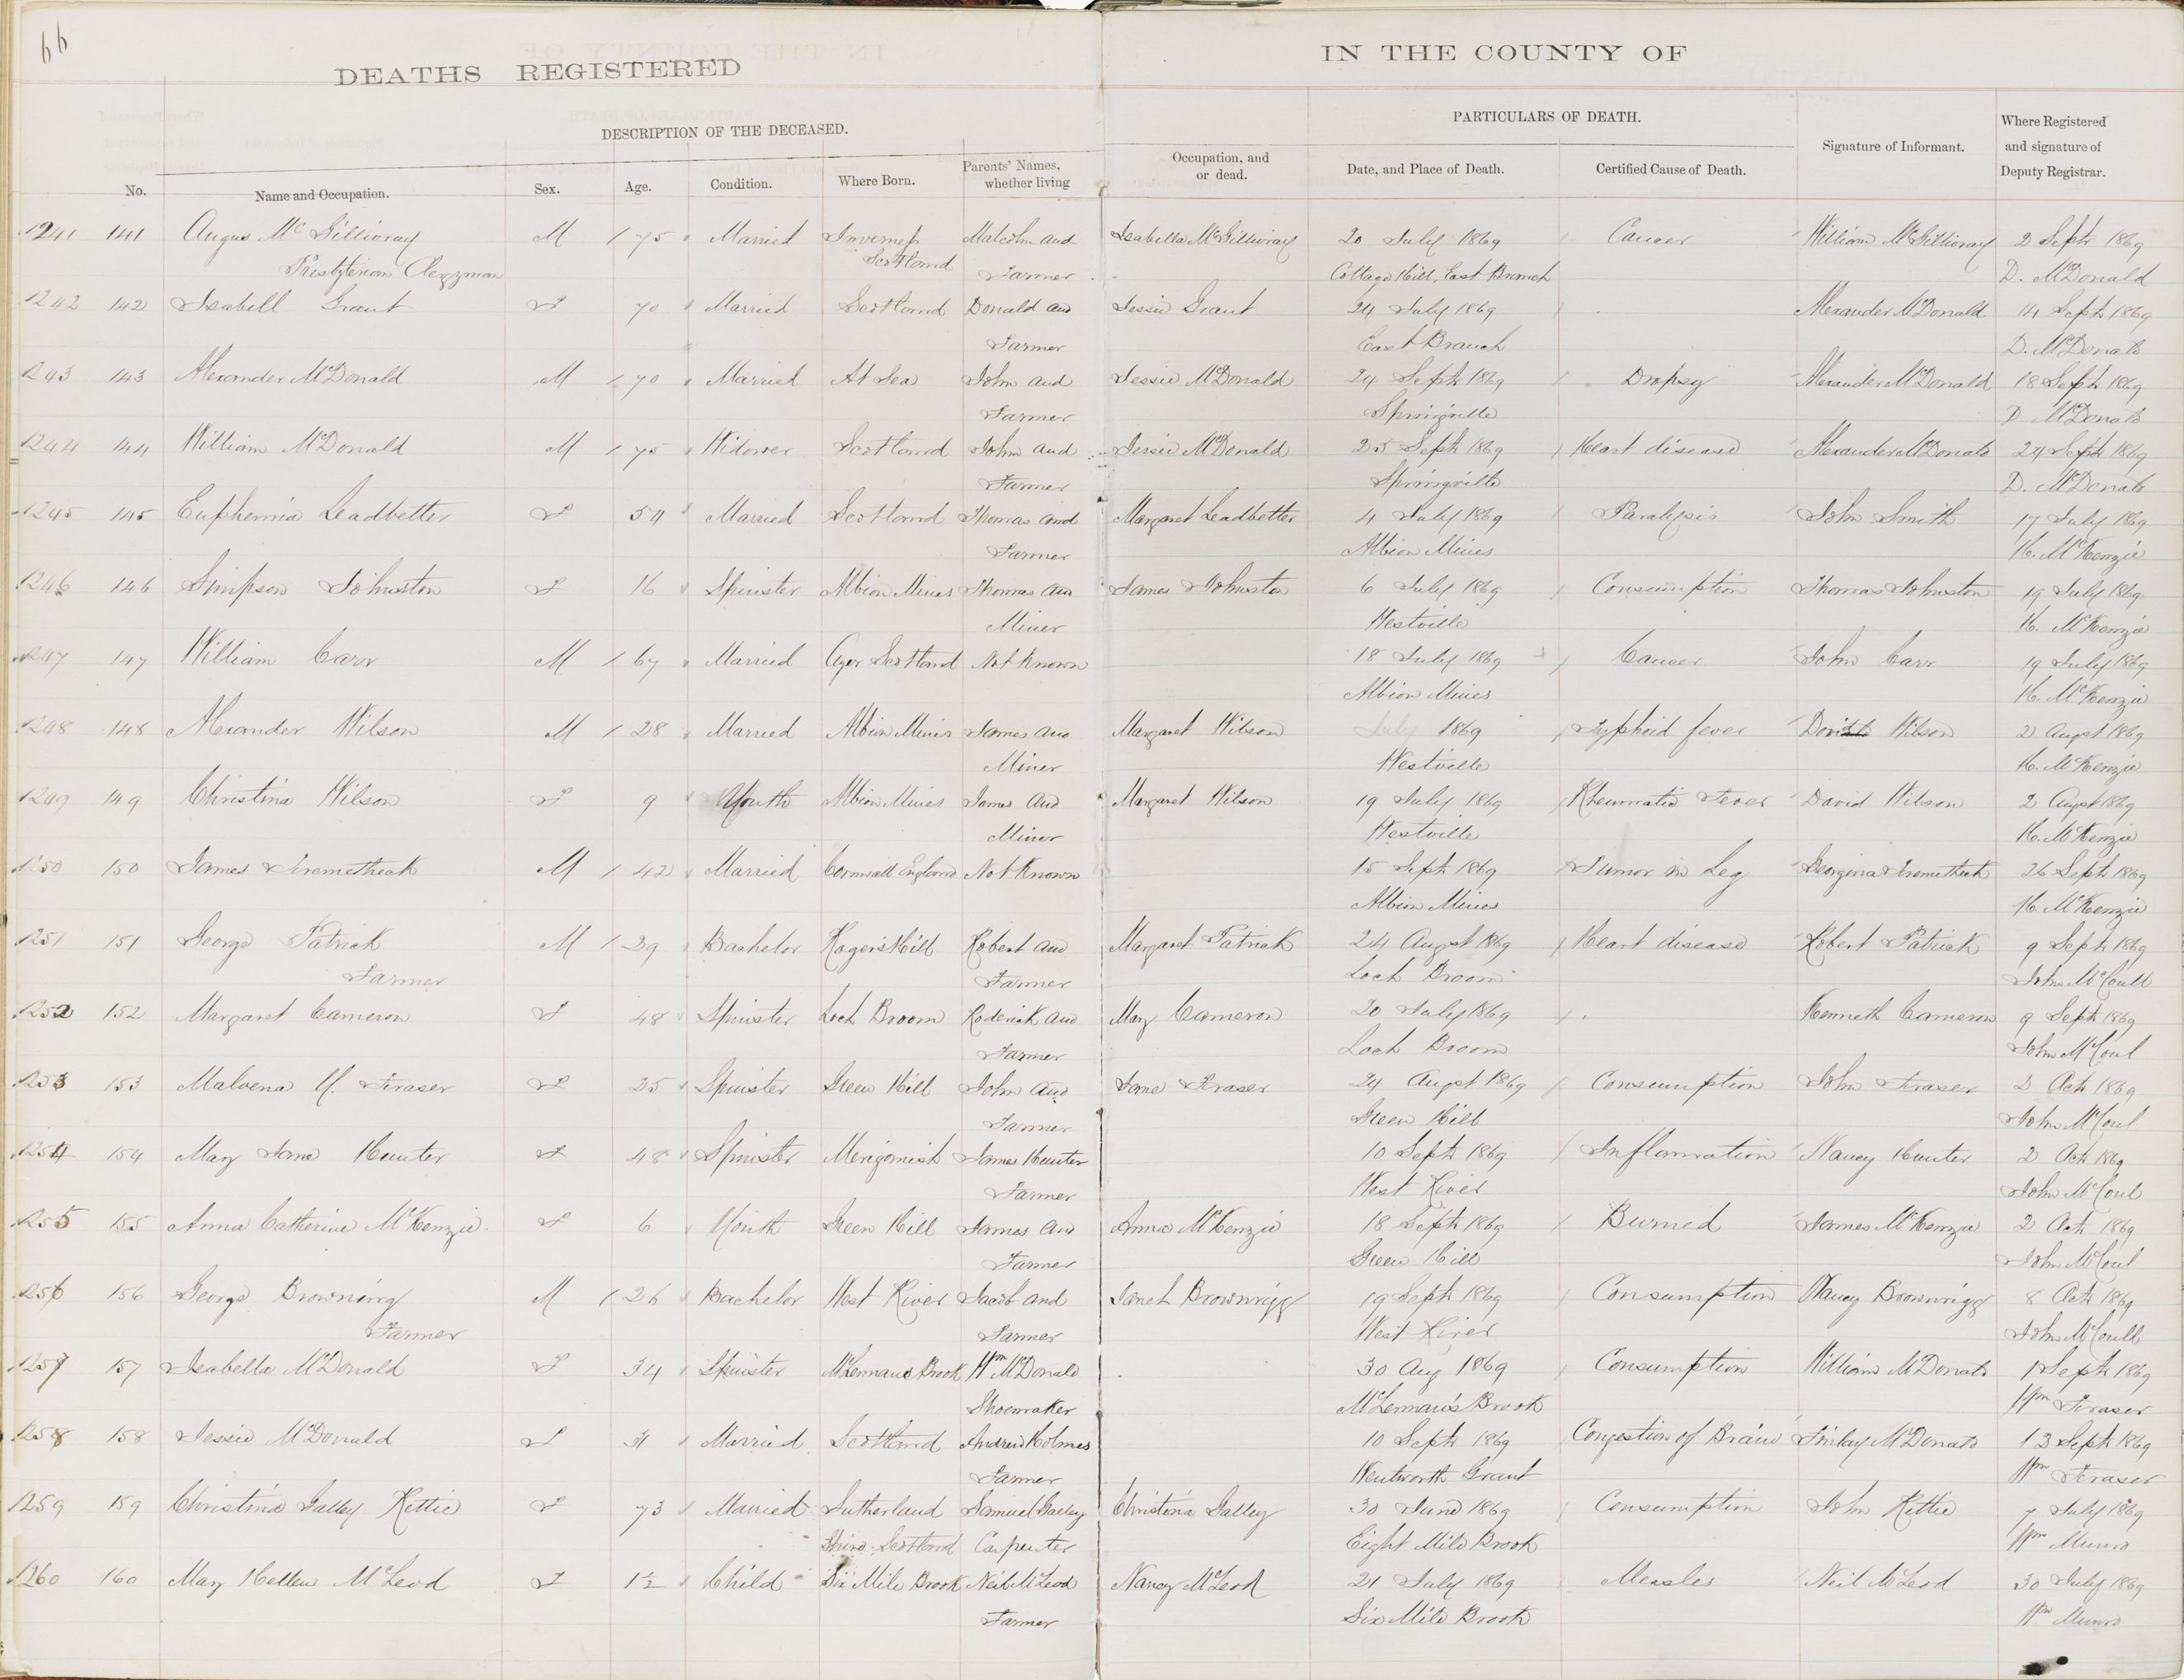 66
DEATHS REGISTERED IN THE COUNTY OF
DESCRIPTION OF THE DECEASED. PARTICULARS OF DEATH.
No. Name and Occupation. Sex. Age. Condition. Where Born. Parents' Names, whether living Occupation, and or dead. Date, and Place of Death. Certified Cause of Death. Signature of Informant. Where Registered and signature of Deputy Registrar.
1241 141 Angus McGillivray M 75 Married Inverness Malcolm and Isabella McGillivray 20 July 1869 Cancer William McGillivray 2 Sept 1869
Presbyterian Clergyman Scotland Farmer Cottage Hill, East Branch D. McDonald
1242 142 Isabell Grant F 70 Married Scotland Donald and Jessie Grant 24 July 1869 Alexander McDonald 14 Sept 1869
Farmer East Branch D. McDonald
1243 143 Alexander McDonald M 70 Married At Sea John and Jessie McDonald 24 Sept 1869 Dropsy Alexander McDonald 18 Sept 1869
Farmer Springville D. McDonald
1244 144 William McDonald M 75 Widower Scotland John and Jessie McDonald 25 Sept 1869 Heart disease Alexander McDonald 24 Sept 1869
Farmer Springville D. McDonald
1245 145 Euphemia Leadbetter F 54 Married Scotland Thomas and Margaret Leadbetter 4 July 1869 Paralysis John Smith 17 July 1869
Farmer Albion Mines H. McKenzie
1246 146 Simpson Johnston F 16 Spinster Albion Mines Thomas and James Johnston 6 July 1869 Consumption Thomas Johnston 19 July 1869
Miner Westville H. McKenzie
1247 147 William Carr M 67 Married Ayer Scotland Not Known 18 July 1869 Cancer John Carr 19 July 1869
Albion Mines H. McKenzie
1248 148 Alexander Wilson M 28 Married Albion Mines James and Margaret Wilson July 1869 Typhoid fever David Wilson 2 Augst 1869
Miner Westville H. McKenzie
1249 149 Christina Wilson F 9 Youth Albion Mines James and Margaret Wilson 19 July 1869 Rheumatic Fever David Wilson 2 Augst 1869
Miner Westville H. McKenzie
1250 150 James Tremetheck M 42 Married Cornwall England Not Known 15 Sept 1869 Tumor in Leg Georgina Tremetheck 26 Sept 1869
Albion Mines H. McKenzie
1251 151 George Patrick M 29 Bachelor Rogers Hill Robert and Margaret Patrick 24 Augst 1869 Heart disease Robert Patrick 9 Sept 1869
Farmer Farmer Loch Broom John McCoull
1252 152 Margaret Cameron F 48 Spinster Loch Broom Roderick and Mary Cameron 20 July 1869 Kenneth Cameron 9 Sept 1869
Farmer Loch Broom John McCoul
1253 153 Malvena M. Fraser F 25 Spinster Green Hill John and Jane Fraser 24 Augst 1869 Consumption John Fraser 2 Oct 1869
Farmer Green Hill John McCoul
1254 154 Mary Jane Hunter F 48 Spinster Merigomish James Hunter 10 Sept 1869 Inflamation Nancy Hunter 2 Oct 1869
Farmer West River John McCoul
1255 155 Anna Catherine McKenzie F 6 Youth Green Hill James and Anna McKenzie 18 Sept 1869 Burned James McKenzie 2 Oct 1869
Farmer Green Hill John McCoul
1256 156 George Browning M 26 Bachelor West River Jacob and Janet Brownrigg 19 Sept 1869 Consumption Nancy Brownrigg 8 Oct 1869
Farmer Farmer West River John McCoull
1257 157 Isabella McDonald F 34 Spinster McLennans Brook Wm McDonald 30 Aug 1869 Consumption William McDonald 1 Sept 1869
Shoemaker McLennan's Brook Wm Fraser
1258 158 Jessie McDonald F 31 Married Scotland Andrew Holmes 10 Sept 1869 Congestion of Brain Finlay McDonald 13 Sept 1869
Farmer Wentworth Grant Wm Fraser
1259 159 Christina Galley Rettie F 73 Married Sutherland Samuel Galley Christina Galley 30 June 1869 Consumption John Rettie 7 July 1869
Shire Scotland Carpenter Eight Mile Brook Wm Munro
1260 160 Mary Hellen McLeod F 1½ Child Six Mile Brook Neil McLeod Nancy McLeod 21 July 1869 Measles Neil McLeod 30 July 1869
Farmer Six Mile Brook Wm Munro